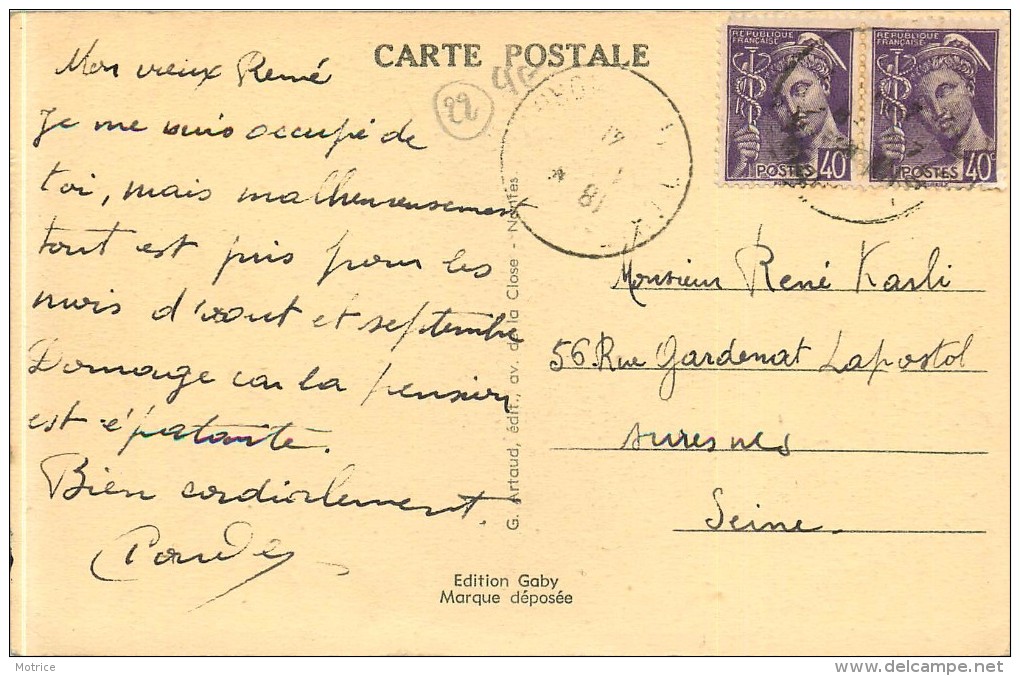 CARTE POSTALE
Mon vieux René
Je me suis occupé de
toi, mais malheureusement
tout est pris pour les
mois d'août et septembre
Domage car la pension
est épatante.
Bien cordialement.
22
REPUBLIQUE FRANÇAISE
POSTES 40c
REPUBLIQUE FRANÇAISE
POSTES 40c
Monsieur René Karli
56 Rue Gardenat Lapostol
Suresnes
Seine.
G. Artaud, édit., av. de la Close - Nantes
Edition Gaby
Marque déposée
Motrice
www.delcampe.net